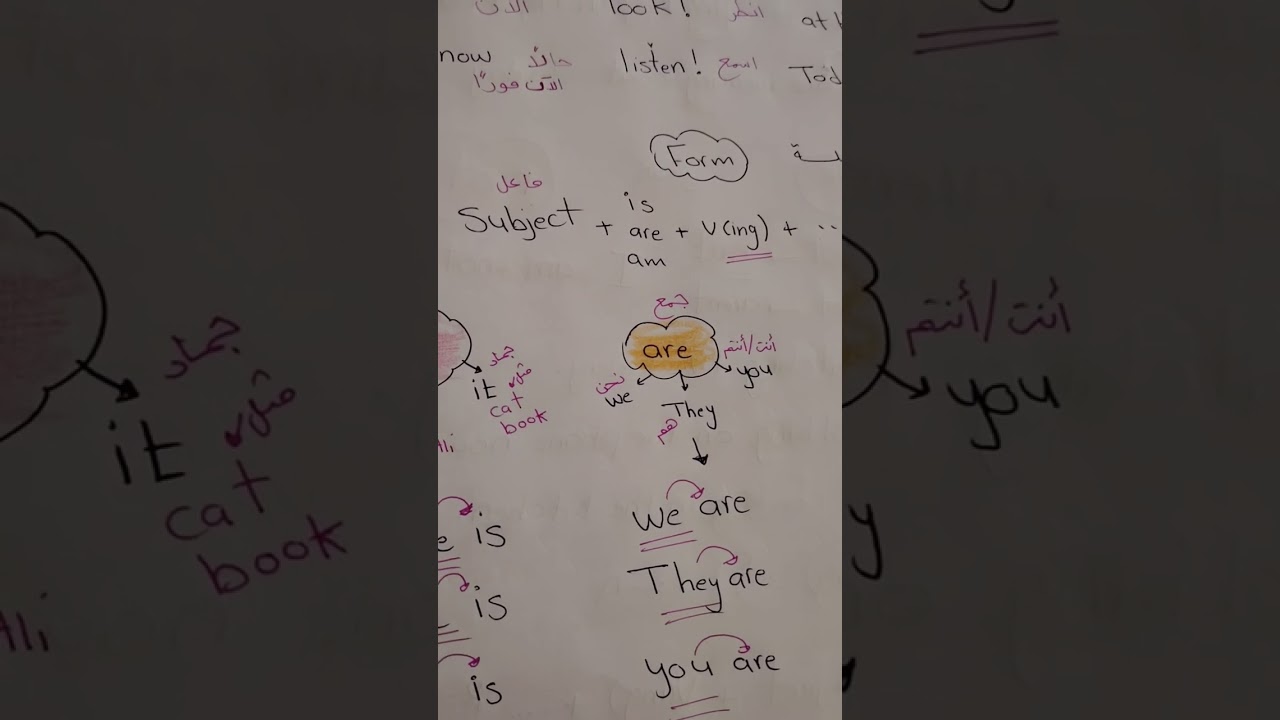 الآن look! انظر at
now حالاً listen! اسمع Tod
الآن فوراً
Form
فاعل
Subject + is are am + v(ing) + ..
جمع
are
جماد it مثل
cat
book
نحن we
هم They
أنت/أنتم you
Ali
is We are
is They are
is you are